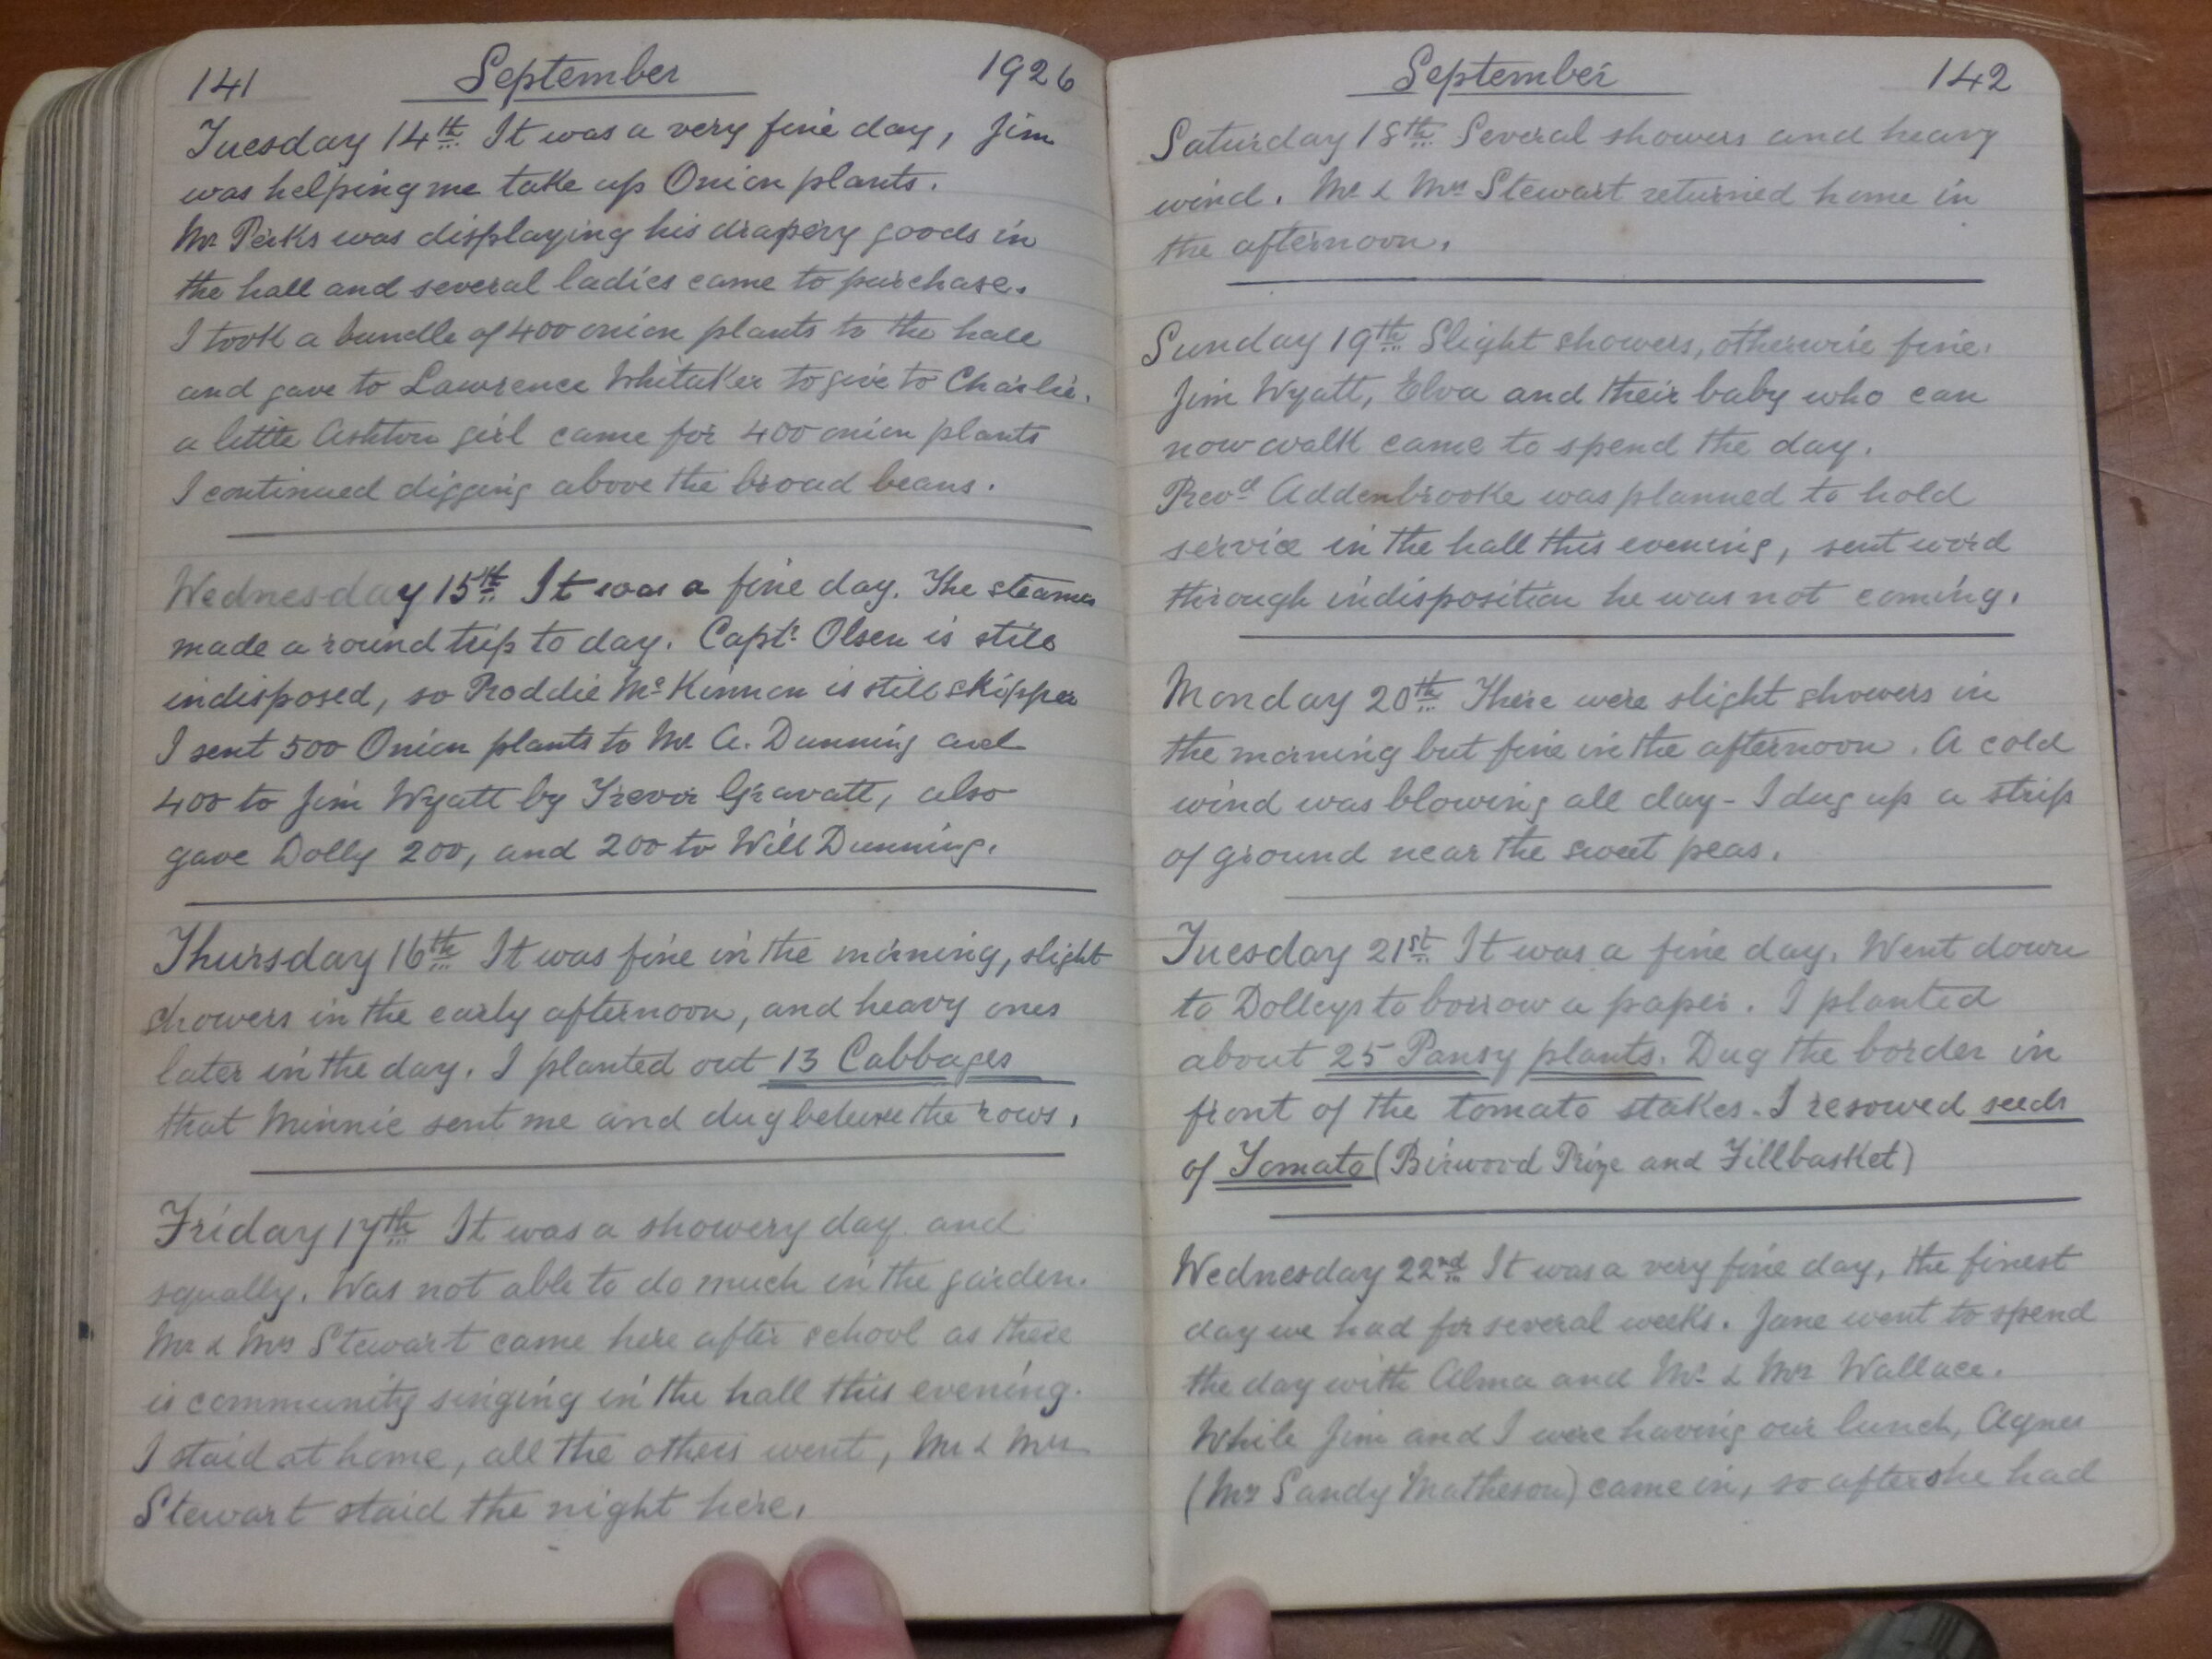 141 September 1926
Tuesday 14th It was a very fine day, Jim
was helping me take up Onion plants.
Mr Perks was displaying his drapery goods in
the hall and several ladies came to purchase.
I took a bundle of 400 onion plants to the hall
and gave to Lawrence Whitaker to give to Charlie.
a little Ashton girl came for 400 onion plants
I continued digging above the broad beans.
Wednesday 15th It was a fine day. The steamer
made a round trip to day. Capt. Olsen is still
indisposed, so Roddie McKinnon is still skipper
I sent 500 Onion plants to Mr A. Dunning and
400 to Jim Wyatt by Trevor Gravatt, also
gave Dolly 200, and 200 to Will Dunning.
Thursday 16th It was fine in the morning, slight
showers in the early afternoon, and heavy ones
later in the day. I planted out 13 Cabbages
that Minnie sent me and dug between the rows.
Friday 17th It was a showery day and
squally. Was not able to do much in the garden.
Mr & Mrs Stewart came here after school as there
is community singing in the hall this evening.
I staid at home, all the others went, Mr & Mrs
Stewart staid the night here.
September 142
Saturday 18th Several showers and heavy
wind. Mr & Mrs Stewart returned home in
the afternoon.
Sunday 19th Slight showers, otherwise fine.
Jim Wyatt, Elva and their baby who can
now walk came to spend the day.
Revd Addenbrooke was planned to hold
service in the hall this evening, sent word
through indisposition he was not coming.
Monday 20th There were slight showers in
the morning but fine in the afternoon. A cold
wind was blowing all day - I dug up a strip
of ground near the sweet peas.
Tuesday 21st It was a fine day. Went down
to Dolleys to borrow a paper. I planted
about 25 Pansy plants. Dug the border in
front of the tomato stakes. I resowed seeds
of Tomato (Burwood Prize and Fillbasket)
Wednesday 22nd It was a very fine day, the finest
day we had for several weeks. Jane went to spend
the day with Alma and Mr & Mrs Wallace.
While Jim and I were having our lunch, Agnes
(Mrs Sandy Matheson) came in, so after she had